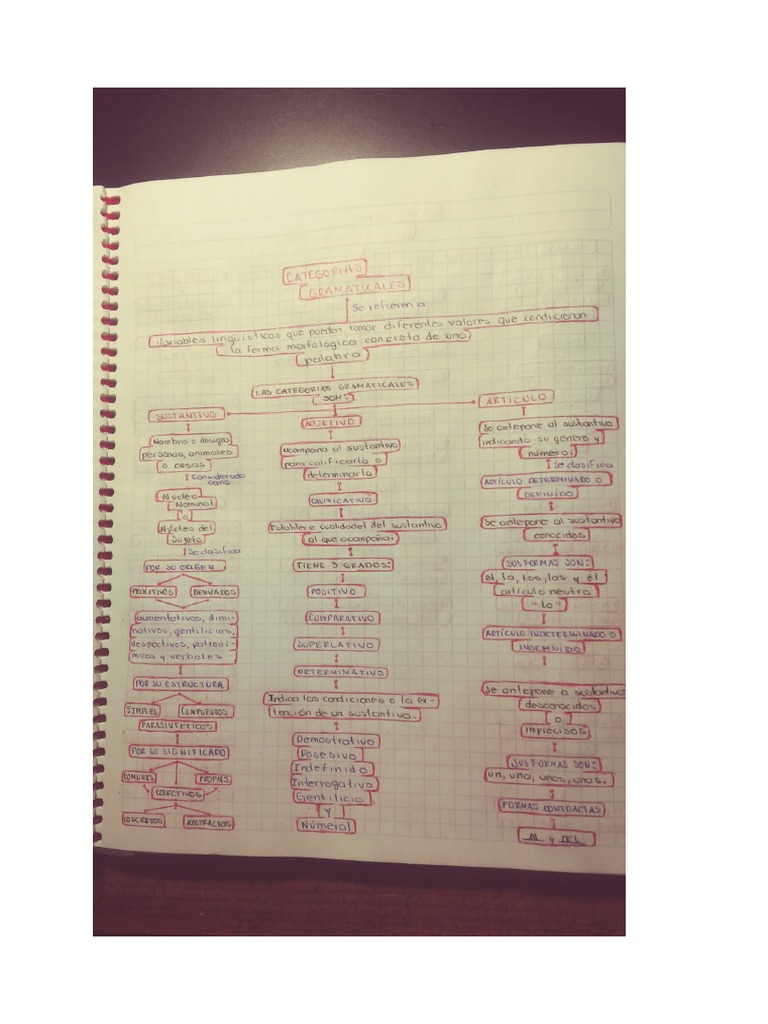 CATEGORIAS
GRAMATICALES
Se refieren a
Variables lingüísticos que pueden tomar diferentes valores que condicionan
la forma morfológica concreta de una
palabra
LAS CATEGORIAS GRAMATICALES
SON:
SUSTANTIVO
Nombra o designa
personas, animales
o cosas
Considerado
como
Núcleo
Nominal
o
Núcleo del
Sujeto
Se clasifica
POR SU ORIGEN
PRIMITIVOS DERIVADOS
aumentativos, dimi-
nutivos, gentilicios,
despectivos, patroní-
micos y verbales
POR SU ESTRUCTURA
SIMPLES COMPUESTOS
PARASINTETICOS
POR SU SIGNIFICADO
COMUNES PROPIOS
COLECTIVOS
CONCRETOS ABSTRACTOS
ADJETIVO
acompaña al sustantivo
para calificarlo o
determinarlo
Y
CALIFICATIVO
Establece cualidadel del sustantivo
al que acompaña.
TIENE 3 GRADOS:
POSITIVO
COMPARATIVO
SUPERLATIVO
DETERMINATIVO
Indica las condiciones o la ex-
tención de un sustantivo.
Demostrativo
Posesivo
Indefinido
Interrogativo
Gentilicio
Y
Númeral
ARTICULO
Se antepone al sustantivo
indicando su género y
número.
Se clasifica
ARTÍCULO DETERMINADO O
DEFINIDO
Se antepone al sustantivo
conocidos
SUS FORMAS SON:
el, la, los, las y el
artículo neutro
"lo"
ARTÍCULO INDETERMINADO O
INDEFINIDO
Se antepone a sustantivos
desconocidos
o
imprecisos
SUS FORMAS SON:
un, una, unos, unas.
FORMAS CONTRACTAS
AL y DEL